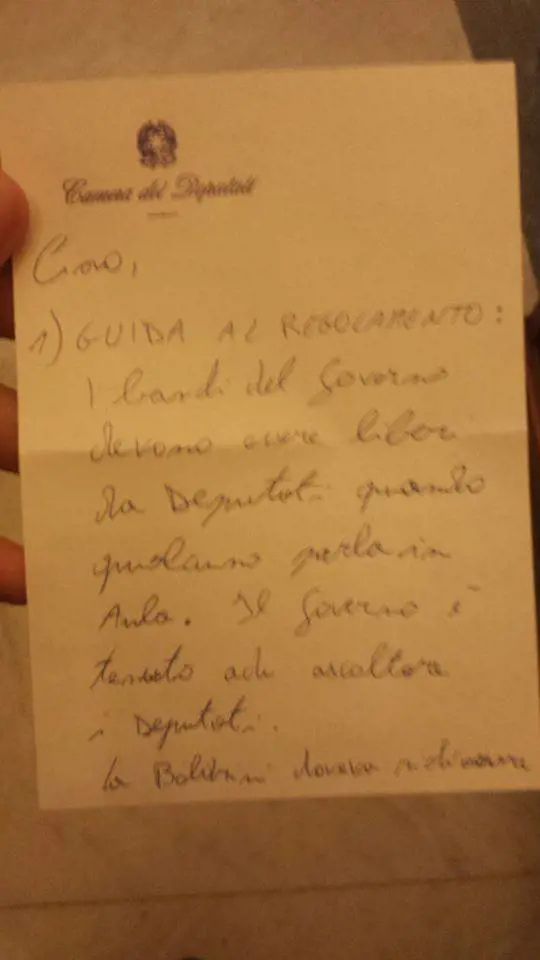 Camera dei Deputati
Ciao,
1) GUIDA AL REGOLAMENTO:
I banchi del Governo
devono essere liberi
da Deputati quando
qualcuno parla in
Aula. Il Governo è
tenuto ad ascoltare
i Deputati.
La Boldrini doveva richiamare